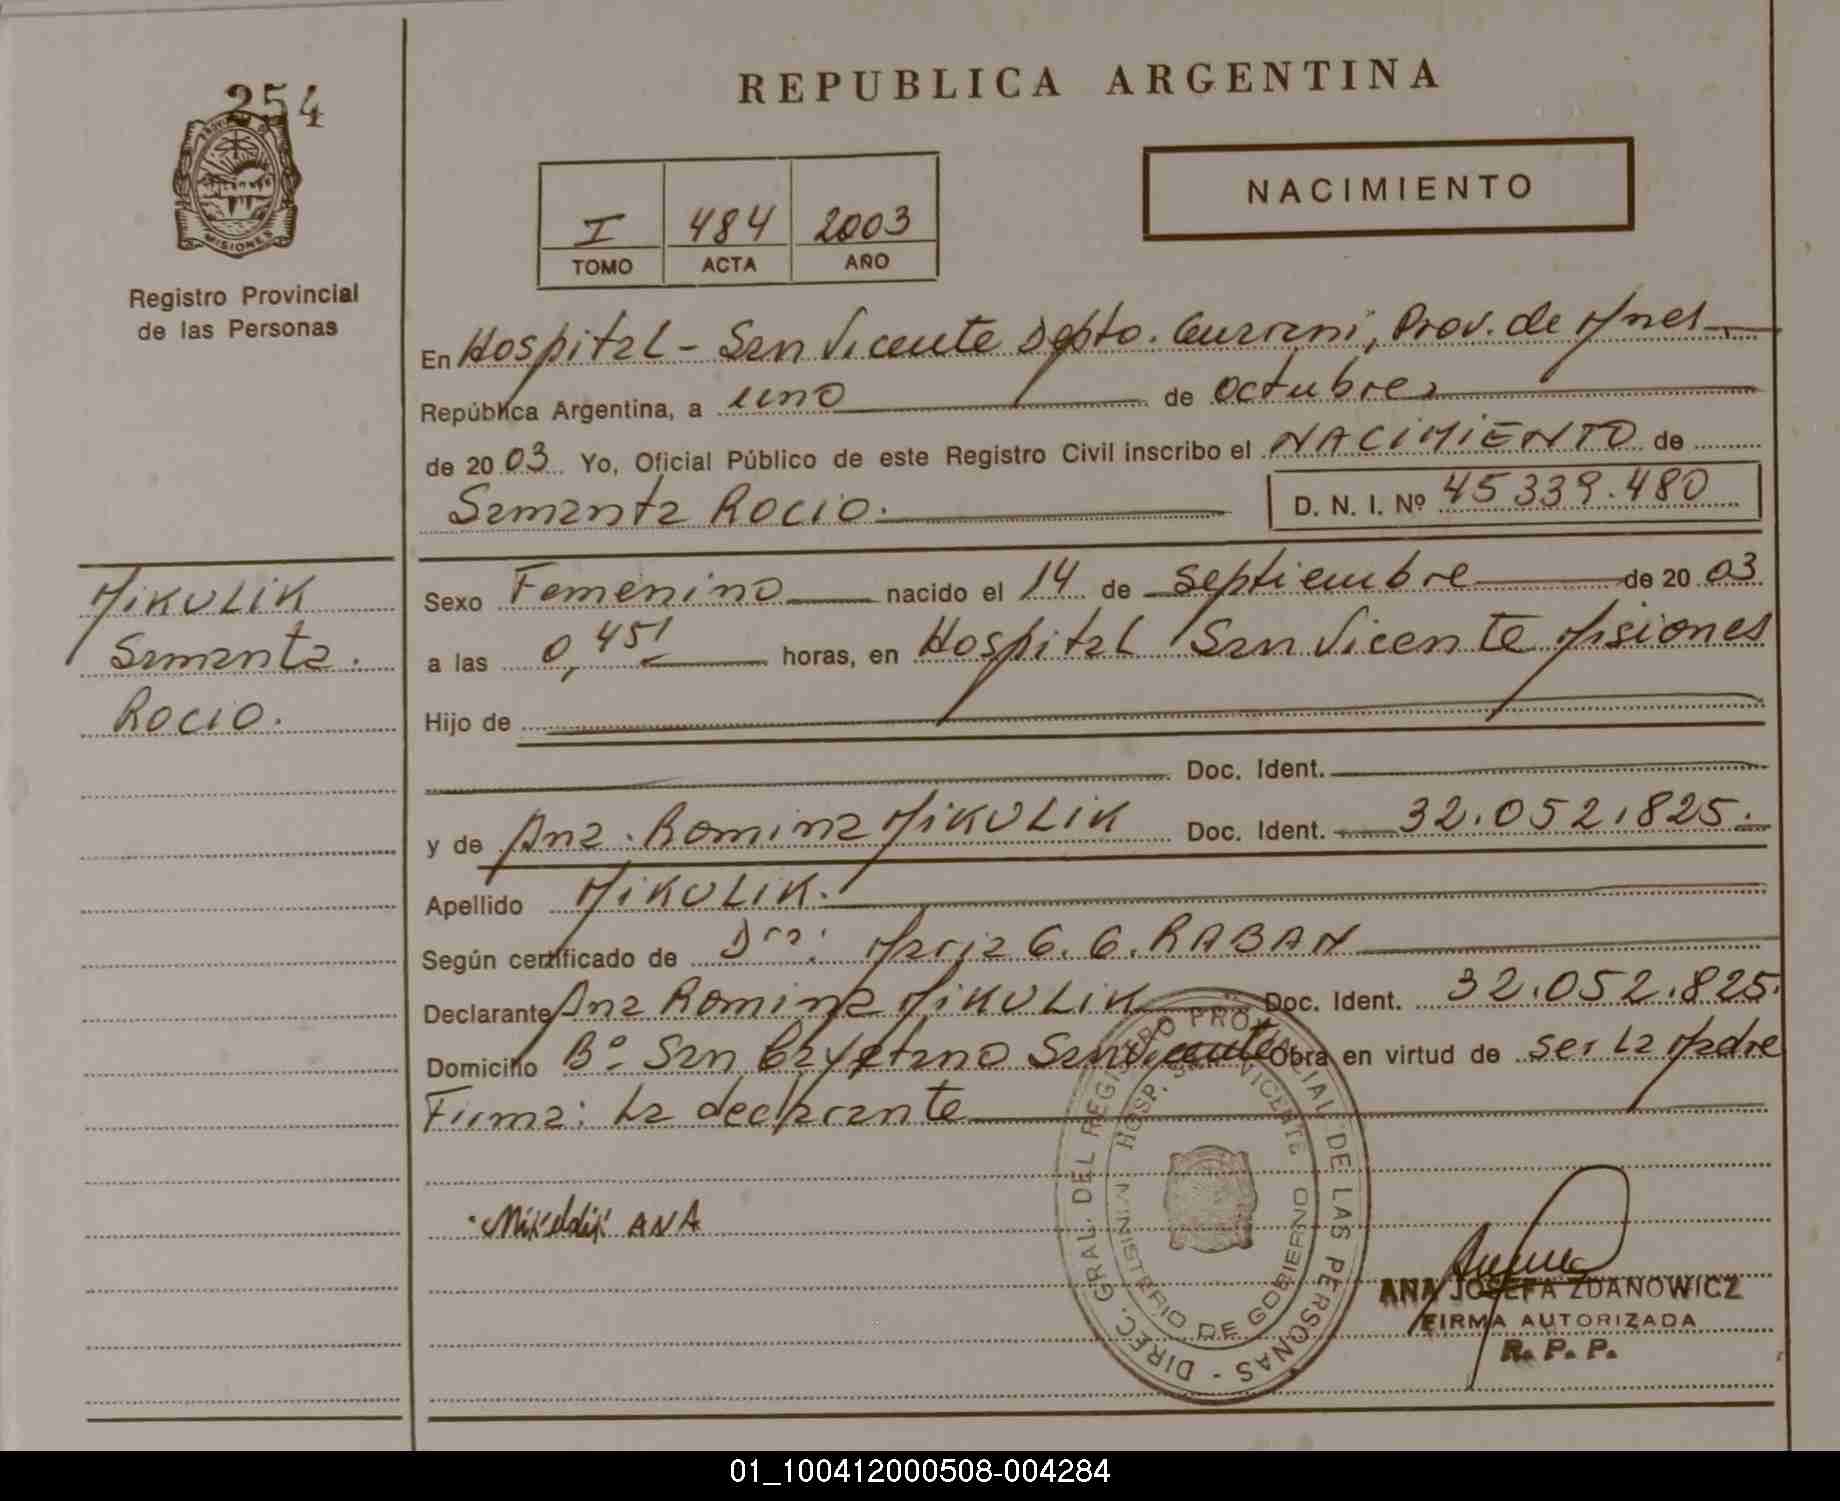 254
REPUBLICA ARGENTINA
PROVINCIA DE
MISIONES
Registro Provincial
de las Personas
NACIMIENTO
I 484 2003
TOMO ACTA AÑO
En Hospital - San Vicente Dpto. Guarani, Prov. de Mnes
República Argentina, a uno de octubre
de 2003 Yo, Oficial Público de este Registro Civil inscribo el NACIMIENTO de
Samanta ROCIO. D. N. I. Nº 45339.480
MIKULIK
Samanta.
ROCIO.
Sexo Femenino nacido el 14 de septiembre de 2003
a las 0,45' horas, en Hospital San Vicente Misiones
Hijo de
Doc. Ident.
y de Ana. Romina MIKULIK Doc. Ident. 32.052.825.
Apellido MIKULIK.
Según certificado de Dra: Maria G. G. RABAN
Declarante Ana Romina MIKULIK Doc. Ident. 32.052.825.
Domicilio Bº San Cayetano San Vicente Obra en virtud de ser La Madre
Firma: La declarante
Mikulik ANA
DIREC. GRAL. DEL REGISTRO PROVINCIAL DE LAS PERSONAS -
HOSP. SAN VICENTE
MINISTERIO DE GOBIERNO
ANA JOSEFA ZDANOWICZ
FIRMA AUTORIZADA
R. P. P.
01_100412000508-004284